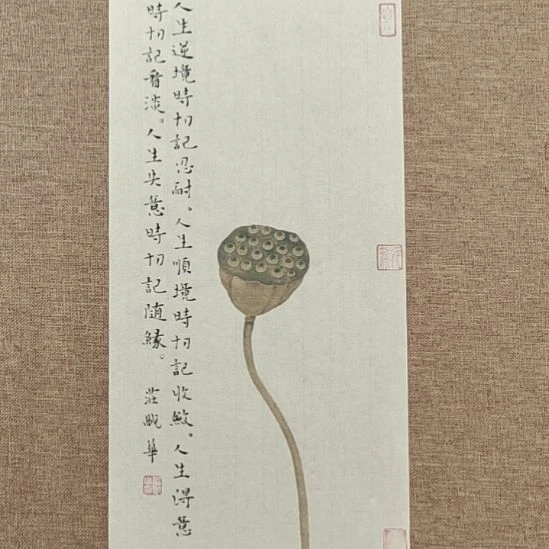 人生逆境時切記忍耐。人生順境時切記收斂。人生得意
時切記看淡。人生失意時切記隨緣。
莊畹華